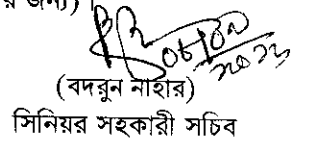 র জন্য)।
(বদরুন নাহার)
সিনিয়র সহকারী সচিব